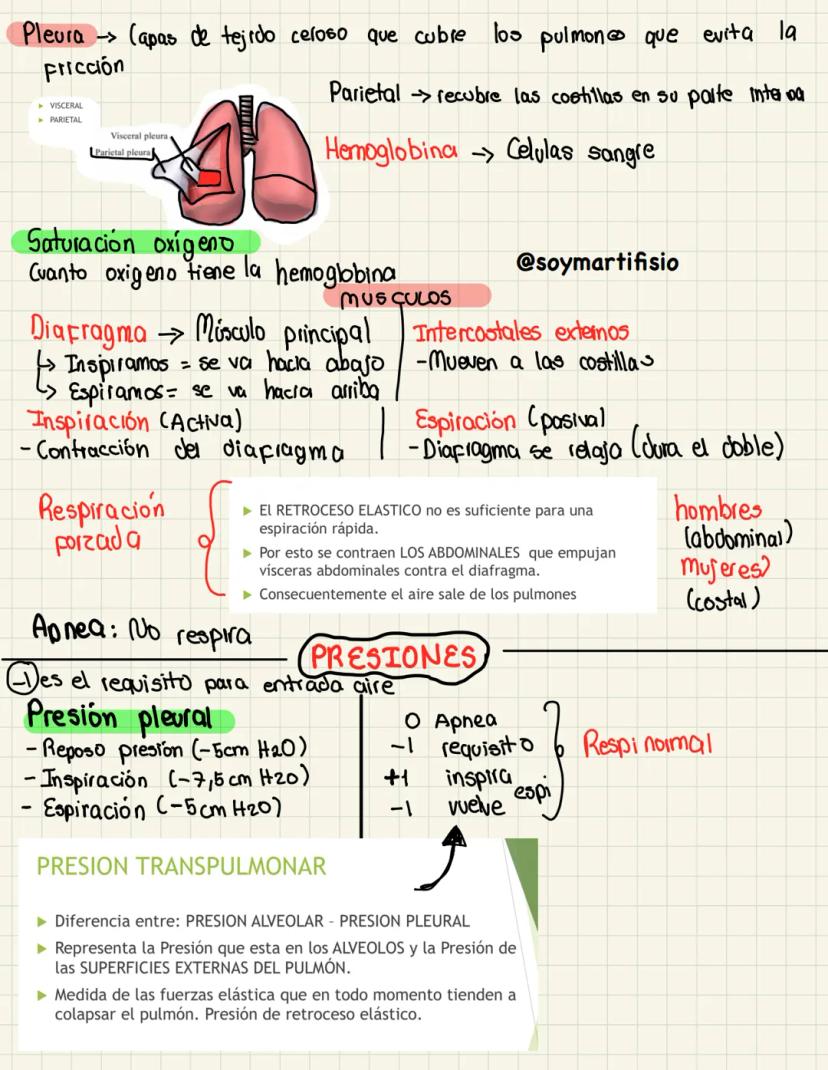 Pleura → Capas de tejido ceroso que cubre los pulmones que evita la
fricción
▶ VISCERAL
▶ PARIETAL
Visceral pleura
Parietal pleura
Parietal → recubre las costillas en su parte interna
Hemoglobina → Celulas sangre
Saturación oxígeno
Cuanto oxigeno tiene la hemoglobina
@soymartifisio
MUSCULOS
Diafragma → Músculo principal
↳ Inspiramos = se va hacia abajo
↳ Espiramos = se va hacia arriba
Intercostales externos
- Mueven a las costillas
Inspiración (Activa)
- Contracción del diafragma
Espiración (pasiva)
- Diafragma se relaja (dura el doble)
Respiración
forzada
▶ El RETROCESO ELASTICO no es suficiente para una
espiración rápida.
▶ Por esto se contraen LOS ABDOMINALES que empujan
vísceras abdominales contra el diafragma.
▶ Consecuentemente el aire sale de los pulmones
hombres
(abdominal)
mujeres
(costal)
Apnea: No respira
PRESIONES
-1 es el requisito para entrada aire
Presión pleural
- Reposo presión (-5cm H2O)
- Inspiración (-7,5 cm H2O)
- Espiración (-5 cm H2O)
0 Apnea
-1 requisito
+1 inspira
espi
-1 vuelve
Respi normal
PRESION TRANSPULMONAR
▶ Diferencia entre: PRESION ALVEOLAR – PRESION PLEURAL
▶ Representa la Presión que esta en los ALVEOLOS y la Presión de
las SUPERFICIES EXTERNAS DEL PULMÓN.
▶ Medida de las fuerzas elástica que en todo momento tienden a
colapsar el pulmón. Presión de retroceso elástico.